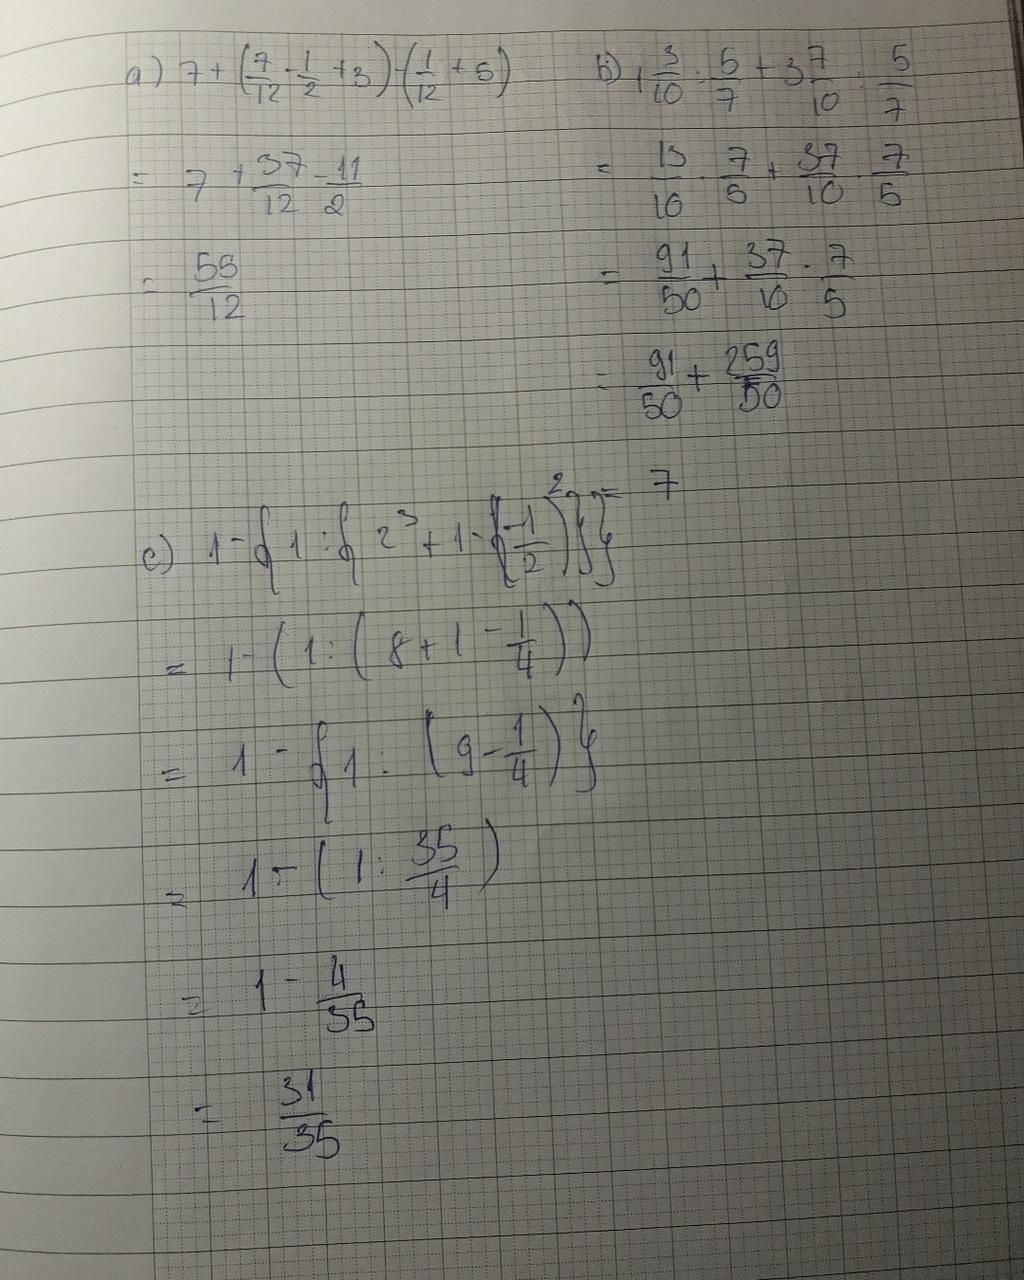 a) 7 + (7/12 - 1/2 + 3) - (1/12 + 5)
= 7 + 37/12 - 11/2
= 55/12
b) 1 3/10 : 5/7 + 3 7/10 : 5/7
= 13/10 · 7/5 + 37/10 · 7/5
= 91/50 + 37/10 · 7/5
= 91/50 + 259/50
= 7
c) 1 - {1 : {2³ + 1 - {(-1/2)²}}
= 1 - (1 : (8 + 1 - 1/4))
= 1 - {1 : (9 - 1/4)}
= 1 - (1 : 35/4)
= 1 - 4/35
= 31/35